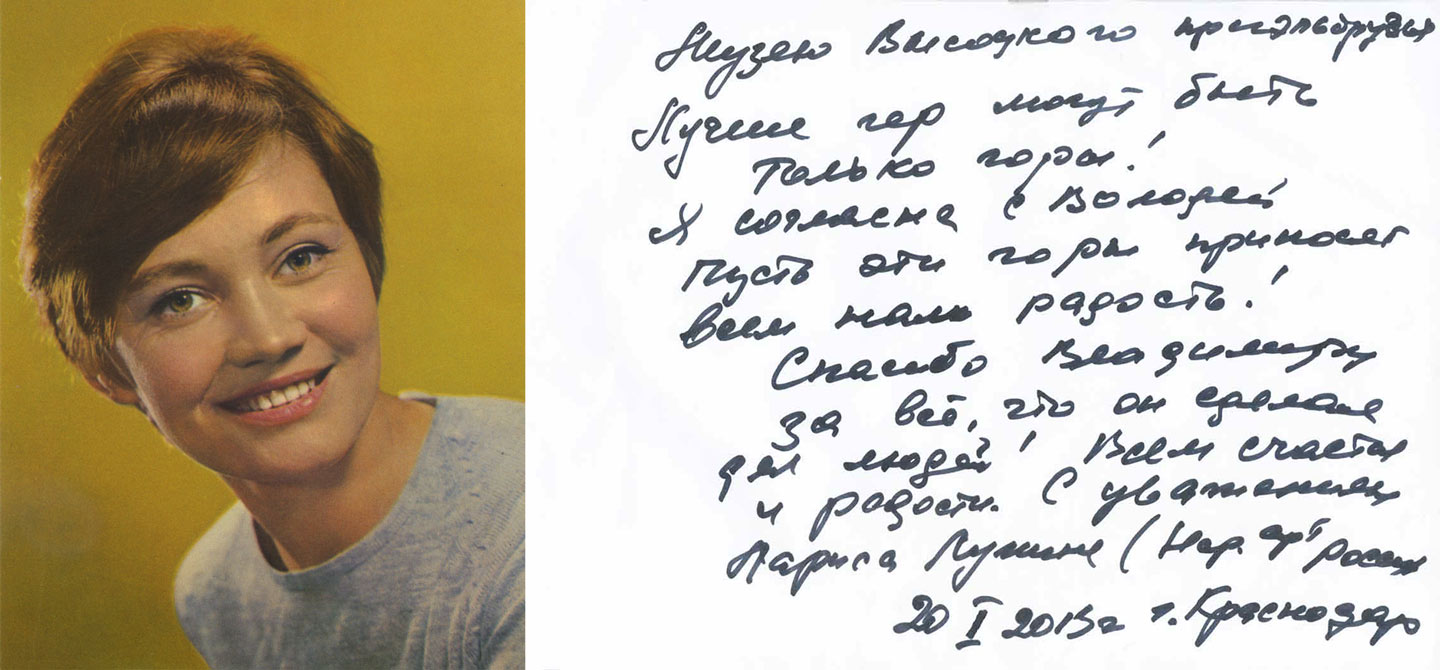 Музею Высоцкого приэльбрузья
Лучше гор могут быть
только горы!
Я согласна с Володей
Пусть эти горы приносят
всем нам радость!
Спасибо Владимиру
за всё, что он сделал
для людей! Всем счастья
и радости. С уважением
Лариса Лужина (Нар. арт России
20 I 2013г г. Краснодар